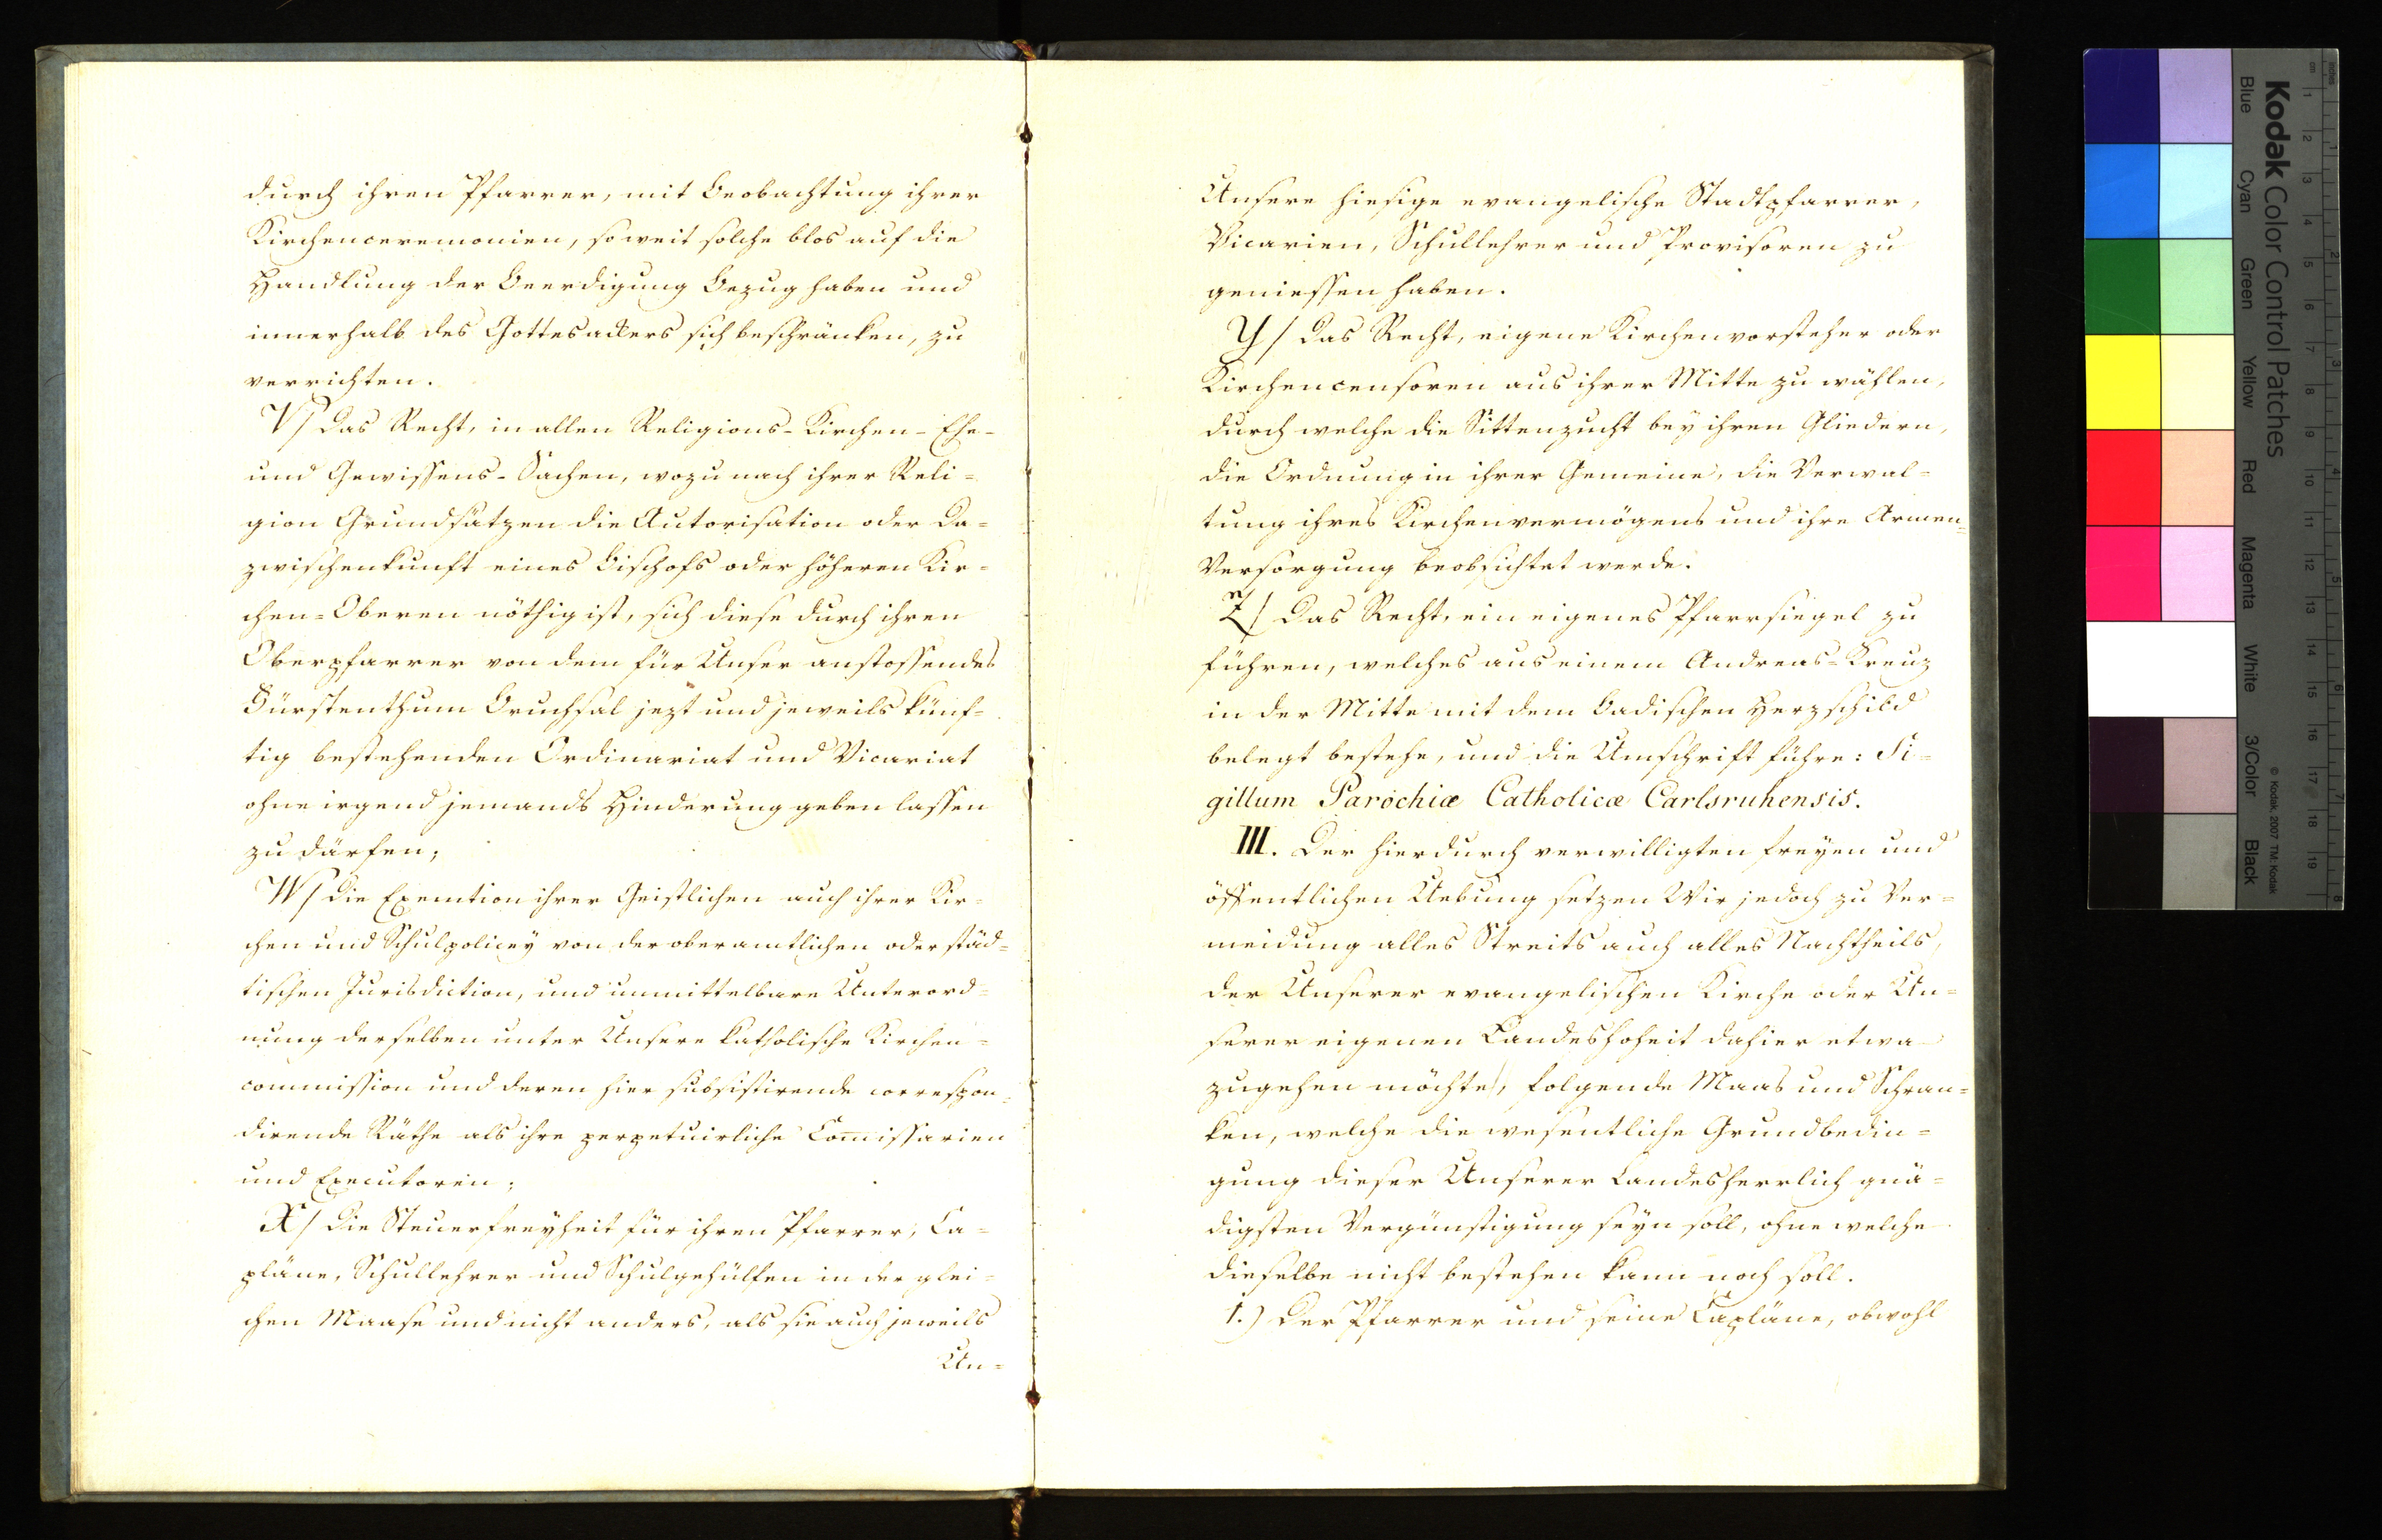 durch ihren Pfarrer, mit Beobachtung ihrer
Kirchenceremonien, soweit solche blos auf die
Handlung der Beerdigung Bezug haben und
innerhalb des Gottesackers sich beschränken, zu
verrichten.
V/ Das Recht, in allen Religions- Kirchen- Ehe-
und Gewissens- Sachen, wozu nach ihrer Reli=
gion Grundsätzen die Autorisation oder Da=
zwischenkunft eines Bischofs oder höheren Kir=
chen=Oberen nöthig ist, sich diese durch ihren
Oberpfarrer von dem für Unser anstossendes
Fürstenthum Bruchsal jezt und jeweils künf=
tig bestehenden Ordinariat und Vicariat
ohne irgend jemands Hinderung geben lassen
zu därfen;
W/ die Exemtion ihrer Geistlichen auch ihrer Kir=
chen und Schulpolicey von der oberamtlichen oder städ=
tischen Jurisdiction, und unmittelbare Unterord=
nung derselben unter Unsere katholische Kirchen=
commission und deren hier subsistirende correspon=
dirende Räthe als ihre perpetuirliche Comissarien
und Executoren;
X/ Die Steuerfreyheit für ihren Pfarrer, Ca=
pläne, Schullehrer und Schulgehülfen in der glei=
chen Maase und nicht anders, als sie auch jeweils
Un=
Unsere hiesige evangelische Stadtpfarrer,
Vicarien, Schullehrer und Provisoren zu
geniessen haben.
Y/ Das Recht, eigene Kirchenvorsteher oder
Kirchencensoren aus ihrer Mitte zu wählen,
durch welche die Sittenzucht bey ihren Gliedern,
die Ordnung in ihrer Gemeine, die Verwal=
tung ihres Kirchenvermögens und ihre Armen=
Versorgung beobsichtet werde.
Z/ Das Recht, ein eigenes Pfarrsiegel zu
führen, welches aus einem Andreas=Kreuz
in der Mitte mit dem Badischen Herzschild
belegt bestehe, und die Umschrift führe: Si=
gillum Parochiæ Catholicæ Carlsruhensis.
III. Der hierdurch verwilligten freyen und
öffentlichen Uebung setzen Wir jedoch zu Ver=
meidung alles Streits auch alles Nachtheils,
der Unserer evangelischen Kirche oder Un=
serer eigenen Landeshoheit dahier etwa
zugehen möchte, folgende Maas und Schran=
ken, welche die wesentliche Grundbedin=
gung dieser Unserer Landesherrlich gnä=
digsten Vergünstigung seyn soll, ohne welche
dieselbe nicht bestehen kann noch soll.
1.) Der Pfarrer und seine Capläne, obwohl
Kodak Color Control Patches
Blue Cyan Green Yellow Red Magenta White 3/Color Black
© Kodak, 2007 TM: Kodak
inches 1 2 3 4 5 6 7 8
cm 1 2 3 4 5 6 7 8 9 10 11 12 13 14 15 16 17 18 19